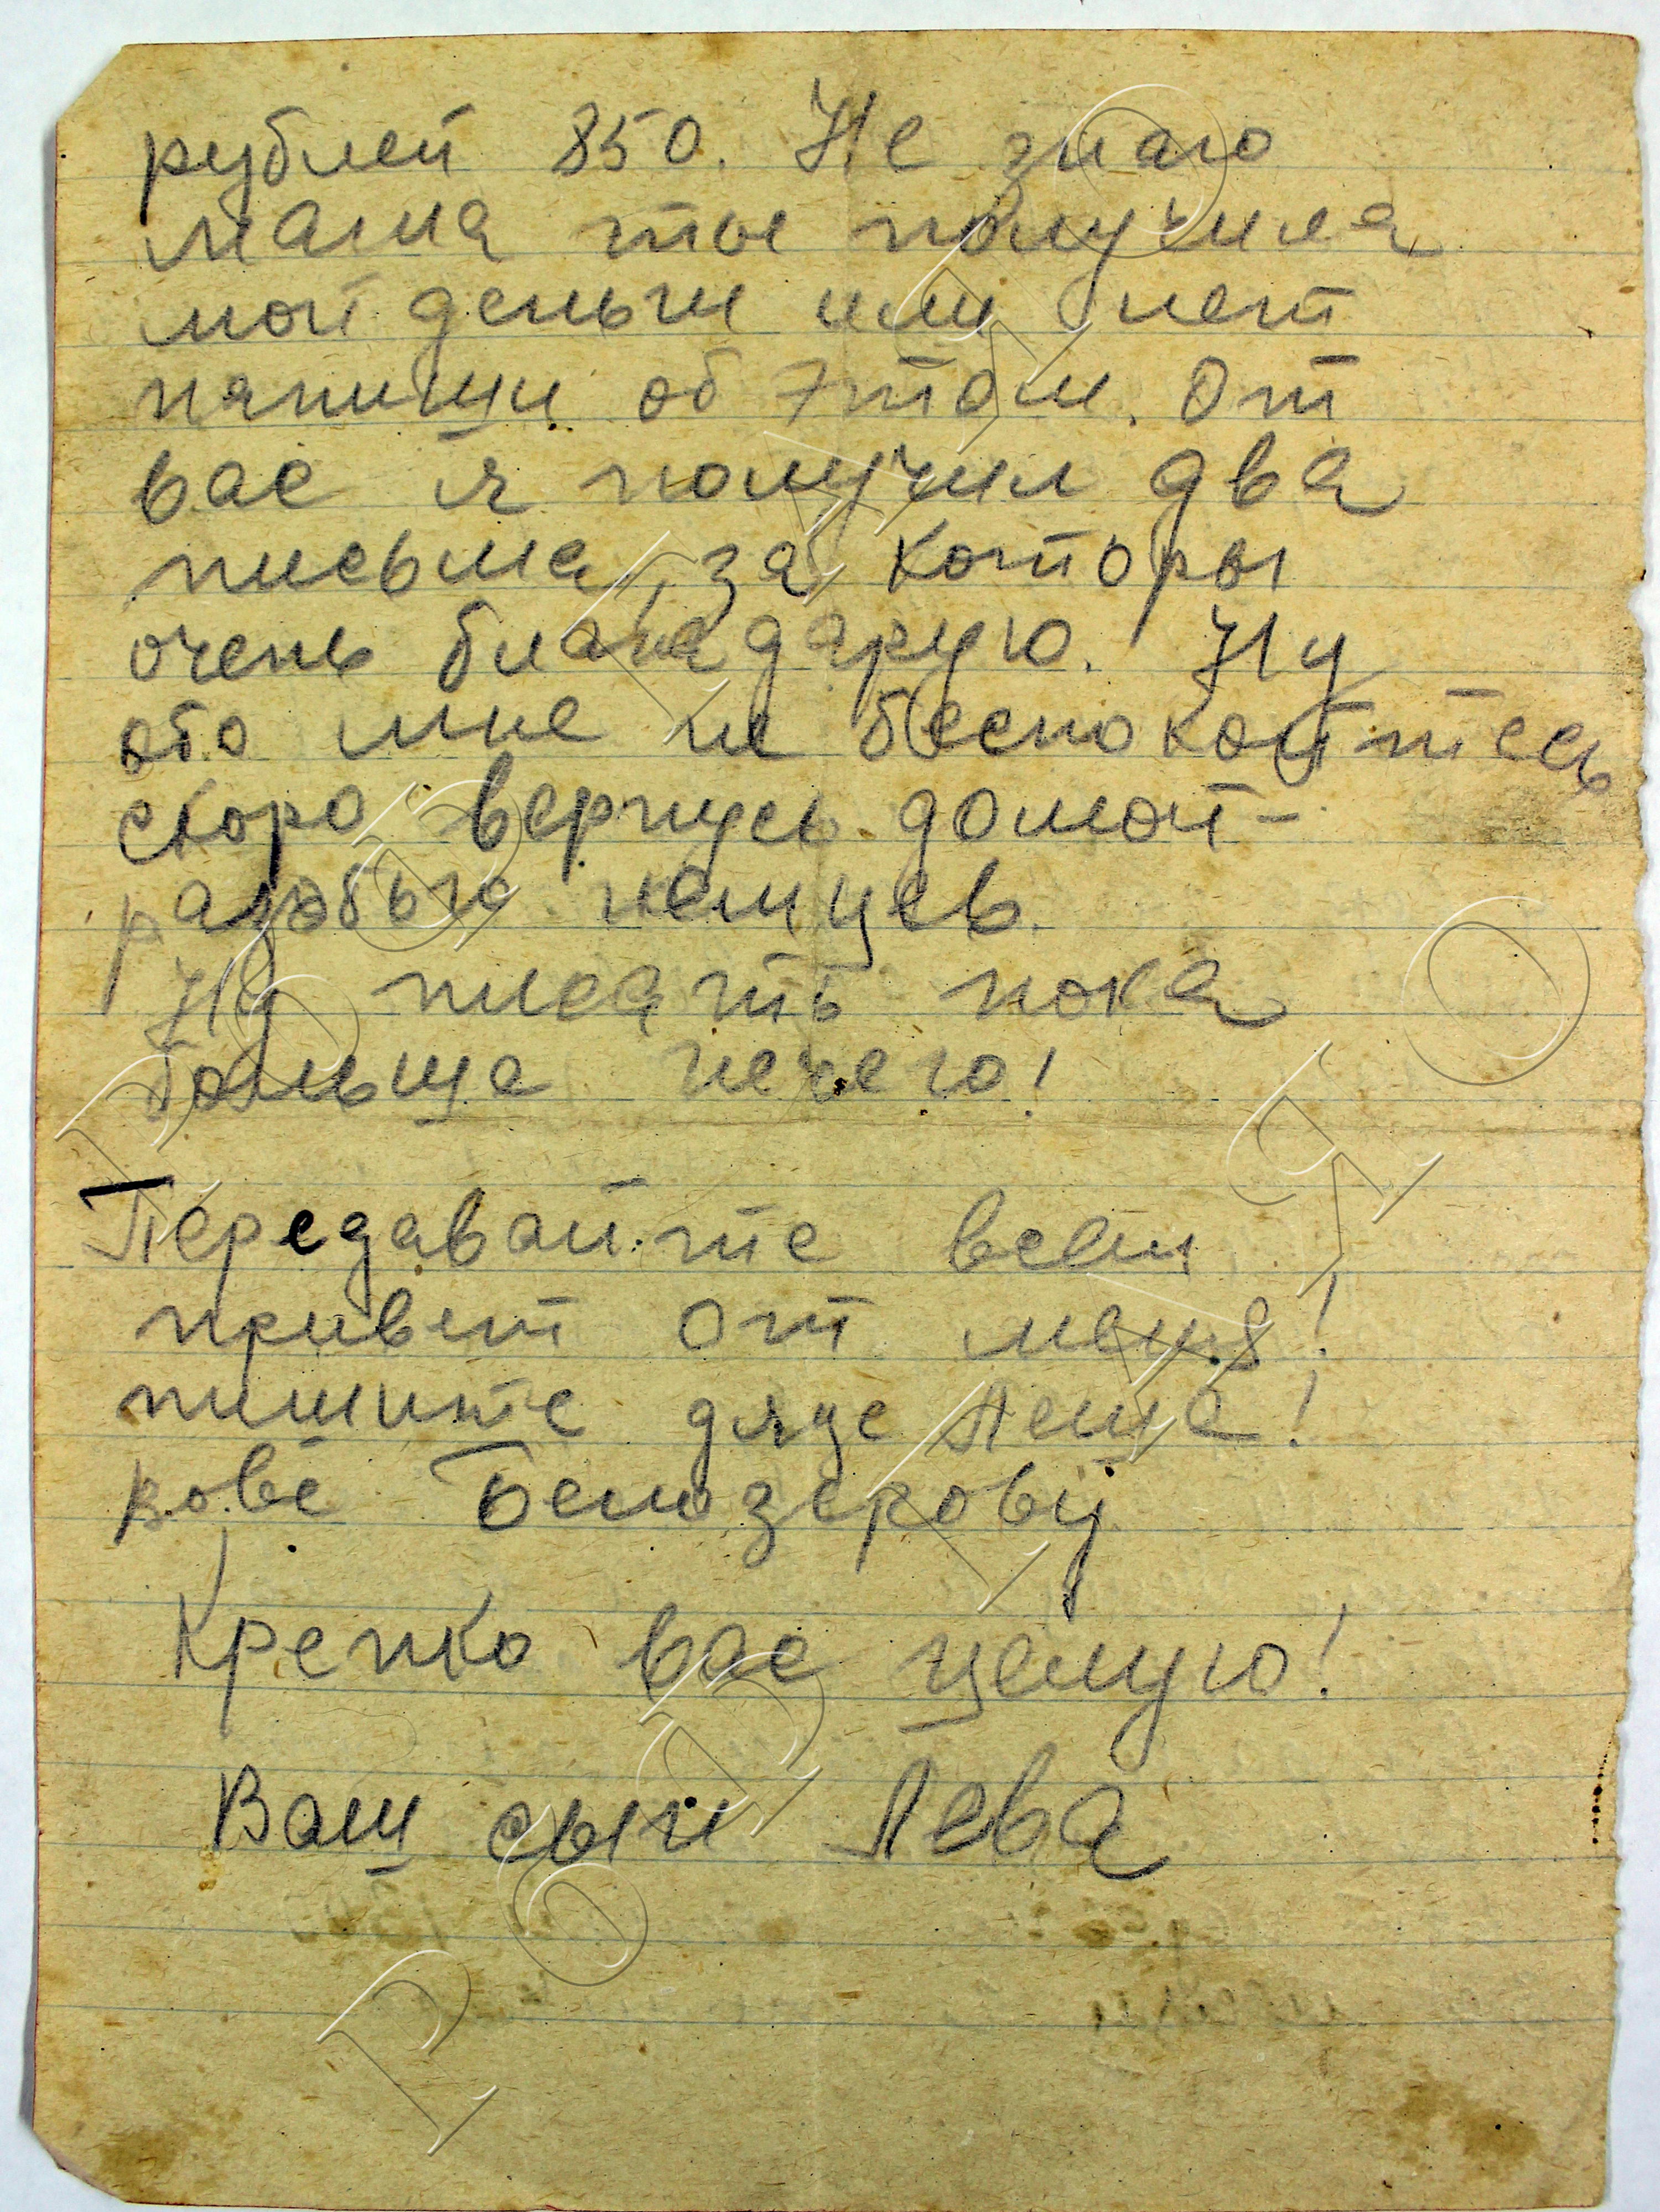 рублей 850. Не знаю
мама ты получила
мои деньги или нет
напиши об этом. От
вас я получил два
письма, за которы
очень благадарую. Ну
обо мне не беспокойтесь
скоро вернусь домой-
разобью немцев.
Ну писать пока
больше нечего!
Передавайте всем
привет от меня!
пишите дяде Леше!
Вове Белозерову
Крепко вас целую!
Ваш сын Лева